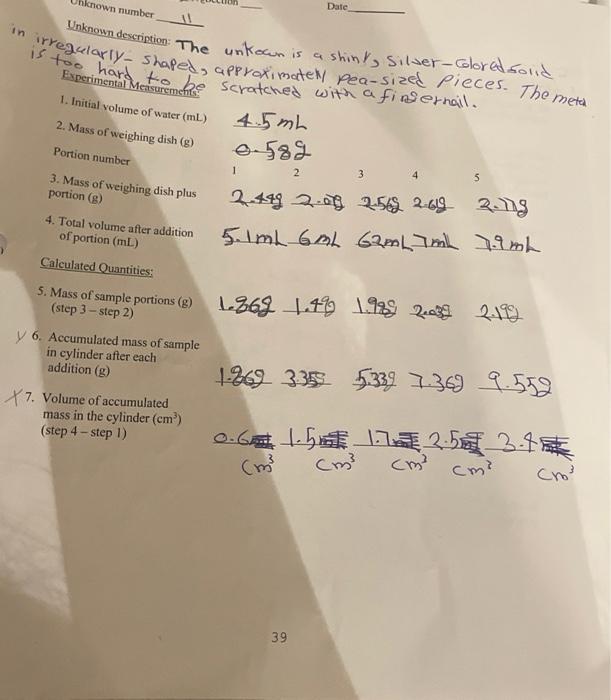 Unknown number 11
Date
Unknown description: The unkown is a shiny, Silver-colored solid
in irregularly-shaped, approximately pea-sized pieces. The metal
is too hard to be scratched with a fingernail.
Experimental Measurements:
1. Initial volume of water (mL) 4.5mL
2. Mass of weighing dish (g) 0.58g
Portion number 1 2 3 4 5
3. Mass of weighing dish plus
portion (g) 2.44g 2.56g 2.61g 2.77g
4. Total volume after addition
of portion (mL) 5.1mL 6mL 62mL 7mL 7.9mL
Calculated Quantities:
5. Mass of sample portions (g)
(step 3 – step 2) 1.86g 1.49g 1.98g 2.03g 2.19g
6. Accumulated mass of sample
in cylinder after each
addition (g) 1.86g 3.35g 5.33g 7.36g 9.55g
7. Volume of accumulated
mass in the cylinder (cm³)
(step 4 – step 1) 0.6 1.5 1.7 2.5 3.4
cm³ cm³ cm³ cm³ cm³
39